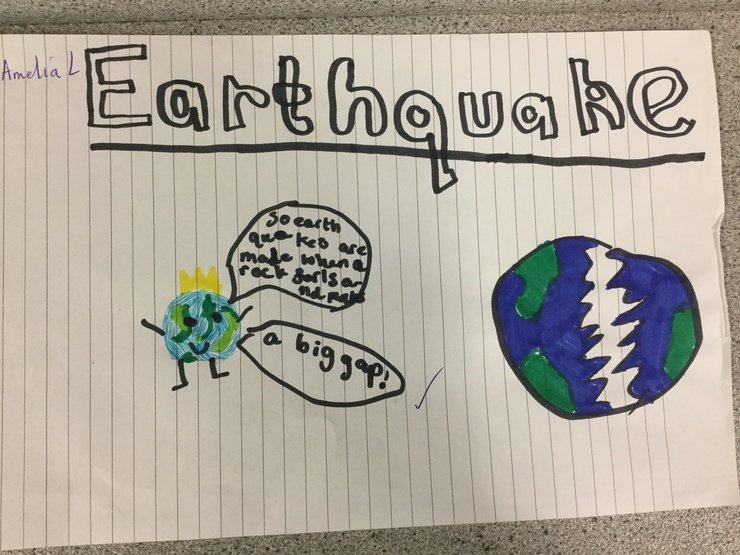 Amelia L
Earthquake
So earth
quakes are
made when a
rock
a big gap!